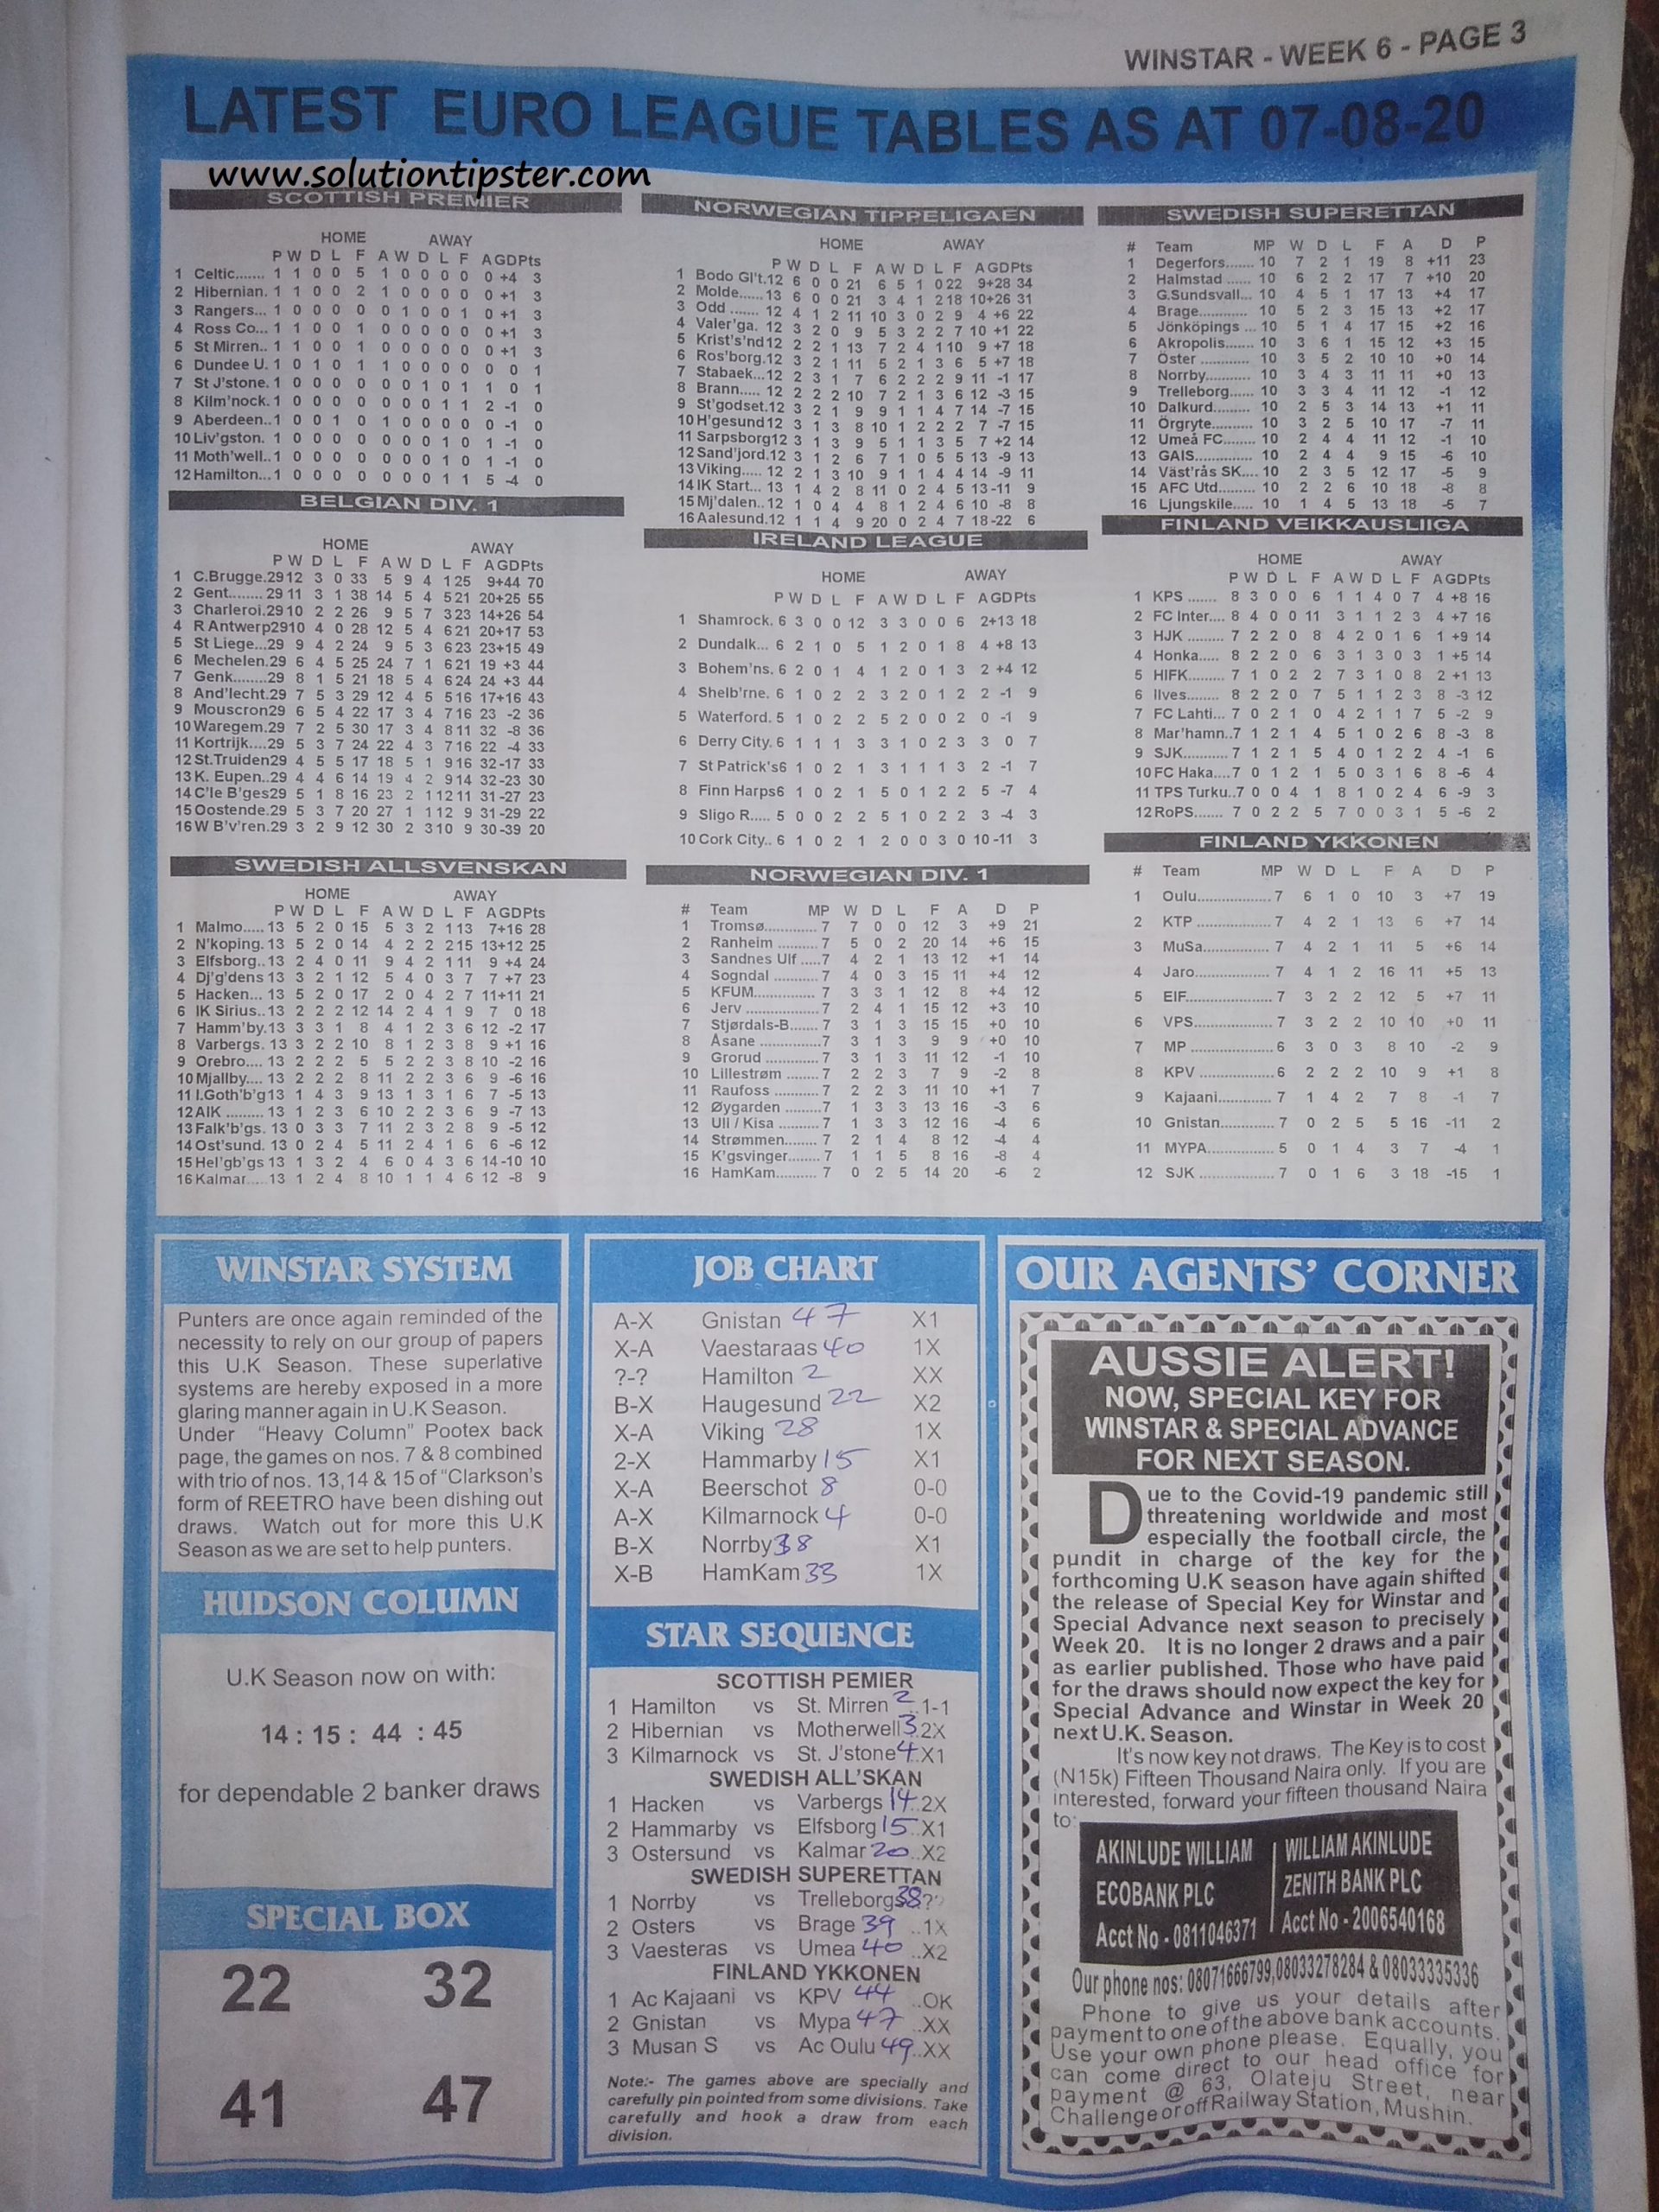 WINSTAR - WEEK 6 - PAGE 3
LATEST EURO LEAGUE TABLES AS AT 07-08-20
www.solutiontipster.com
SCOTTISH PREMIER
HOME AWAY
P W D L F A W D L F A GD Pts
1 Celtic....... 1 1 0 0 5 1 0 0 0 0 0 +4 3
2 Hibernian. 1 1 0 0 2 1 0 0 0 0 0 +1 3
3 Rangers... 1 0 0 0 0 0 1 0 0 1 0 +1 3
4 Ross Co... 1 1 0 0 1 0 0 0 0 0 0 +1 3
5 St Mirren.. 1 1 0 0 1 0 0 0 0 0 0 +1 3
6 Dundee U. 1 0 1 0 1 1 0 0 0 0 0 0 1
7 St J'stone. 1 0 0 0 0 0 0 1 0 1 1 0 1
8 Kilm'nock. 1 0 0 0 0 0 0 0 1 1 2 -1 0
9 Aberdeen.. 1 0 0 1 0 1 0 0 0 0 0 -1 0
10 Liv'gston. 1 0 0 0 0 0 0 0 1 0 1 -1 0
11 Moth'well.. 1 0 0 0 0 0 0 0 1 0 1 -1 0
12 Hamilton... 1 0 0 0 0 0 0 0 1 1 5 -4 0
BELGIAN DIV. 1
HOME AWAY
P W D L F A W D L F A GD Pts
1 C.Brugge.29 12 3 0 33 5 9 4 1 25 9+44 70
2 Gent........ 29 11 3 1 38 14 5 4 5 21 20+25 55
3 Charleroi.29 10 2 2 26 9 5 7 3 23 14+26 54
4 R Antwerp29 10 4 0 28 12 5 4 6 21 20+17 53
5 St Liege...29 9 4 2 24 9 5 3 6 23 23+15 49
6 Mechelen.29 6 4 5 25 24 7 1 6 21 19 +3 44
7 Genk........29 8 1 5 21 18 5 4 6 24 24 +3 44
8 And'lecht.29 7 5 3 29 12 4 5 5 16 17+16 43
9 Mouscron29 6 5 4 22 17 3 4 7 16 23 -2 36
10 Waregem.29 7 2 5 30 17 3 4 8 11 32 -8 36
11 Kortrijk....29 5 3 7 24 22 4 3 7 16 22 -4 33
12 St.Truiden29 4 5 5 17 18 5 1 9 16 32-17 33
13 K. Eupen..29 4 4 6 14 19 4 2 9 14 32-23 30
14 C'le B'ges29 5 1 8 16 23 2 1 12 11 31-27 23
15 Oostende.29 5 3 7 20 27 1 1 12 9 31-29 22
16 W B'v'ren.29 3 2 9 12 30 2 3 10 9 30-39 20
SWEDISH ALLSVENSKAN
HOME AWAY
P W D L F A W D L F A GD Pts
1 Malmo..... 13 5 2 0 15 5 3 2 1 13 7+16 28
2 N'koping. 13 5 2 0 14 4 2 2 2 15 13+12 25
3 Elfsborg.. 13 2 4 0 11 9 4 2 1 11 9 +4 24
4 Dj'g'dens 13 3 2 1 12 5 4 0 3 7 7 +7 23
5 Hacken... 13 5 2 0 17 2 0 4 2 7 11+11 21
6 IK Sirius.. 13 2 2 2 12 14 2 4 1 9 7 0 18
7 Hamm'by. 13 3 3 1 8 4 1 2 3 6 12 -2 17
8 Varbergs. 13 3 2 2 10 8 1 2 3 8 9 +1 16
9 Orebro.... 13 2 2 2 5 5 2 2 3 8 10 -2 16
10 Mjallby.... 13 2 2 2 8 11 2 2 3 6 9 -6 16
11 I.Goth'b'g13 1 4 3 9 13 1 3 1 6 7 -5 13
12 AIK ......... 13 1 2 3 6 10 2 2 3 6 9 -7 13
13 Falk'b'gs. 13 0 3 3 7 11 2 3 2 8 9 -5 12
14 Ost'sund. 13 0 2 4 5 11 2 4 1 6 6 -6 12
15 Hel'gb'gs 13 1 3 2 4 6 0 4 3 6 14-10 10
16 Kalmar.....13 1 2 4 8 10 1 1 4 6 12 -8 9
NORWEGIAN TIPPELIGAEN
HOME AWAY
P W D L F A W D L F A GD Pts
1 Bodo Gl't.12 6 0 0 21 6 5 1 0 22 9+28 34
2 Molde...... 13 6 0 0 21 3 4 1 2 18 10+26 31
3 Odd ....... 12 4 1 2 11 10 3 0 2 9 4 +6 22
4 Valer'ga. 12 3 2 0 9 5 3 2 2 7 10 +1 22
5 Krist's'nd12 2 2 1 13 7 2 4 1 10 9 +7 18
6 Ros'borg.12 3 2 1 11 5 2 1 3 6 5 +7 18
7 Stabaek...12 2 3 1 7 6 2 2 2 9 11 -1 17
8 Brann..... 12 2 2 2 10 7 2 1 3 6 12 -3 15
9 St'godset.12 3 2 1 9 9 1 1 4 7 14 -7 15
10 H'gesund12 3 1 3 8 10 1 2 2 2 7 -7 15
11 Sarpsborg12 3 1 3 9 5 1 1 3 5 7 +2 14
12 Sand'jord.12 3 1 2 6 7 1 0 5 5 13 -9 13
13 Viking..... 12 2 1 3 10 9 1 1 4 4 14 -9 11
14 IK Start... 13 1 4 2 8 11 0 2 4 5 13-11 9
15 Mj'dalen.. 12 1 0 4 4 8 1 2 4 6 10 -8 8
16 Aalesund.12 1 1 4 9 20 0 2 4 7 18-22 6
IRELAND LEAGUE
HOME AWAY
P W D L F A W D L F A GD Pts
1 Shamrock. 6 3 0 0 12 3 3 0 0 6 2+13 18
2 Dundalk... 6 2 1 0 5 1 2 0 1 8 4 +8 13
3 Bohem'ns. 6 2 0 1 4 1 2 0 1 3 2 +4 12
4 Shelb'rne. 6 1 0 2 2 3 2 0 1 2 2 -1 9
5 Waterford. 5 1 0 2 2 5 2 0 0 2 0 -1 9
6 Derry City. 6 1 1 1 3 3 1 0 2 3 3 0 7
7 St Patrick's6 1 0 2 1 3 1 1 1 3 2 -1 7
8 Finn Harps6 1 0 2 1 5 0 1 2 2 5 -7 4
9 Sligo R..... 5 0 0 2 2 5 1 0 2 2 3 -4 3
10 Cork City.. 6 1 0 2 1 2 0 0 3 0 10-11 3
NORWEGIAN DIV. 1
# Team MP W D L F A D P
1 Tromsø............. 7 7 0 0 12 3 +9 21
2 Ranheim .......... 7 5 0 2 20 14 +6 15
3 Sandnes Ulf .....7 4 2 1 13 12 +1 14
4 Sogndal ........... 7 4 0 3 15 11 +4 12
5 KFUM............... 7 3 3 1 12 8 +4 12
6 Jerv .................. 7 2 4 1 15 12 +3 10
7 Stjørdals-B....... 7 3 1 3 15 15 +0 10
8 Åsane ...............7 3 1 3 9 9 +0 10
9 Grorud ............. 7 3 1 3 11 12 -1 10
10 Lillestrøm ........ 7 2 2 3 7 9 -2 8
11 Raufoss ........... 7 2 2 3 11 10 +1 7
12 Øygarden .........7 1 3 3 13 16 -3 6
13 Ull / Kisa .......... 7 1 3 3 12 16 -4 6
14 Strømmen........ 7 2 1 4 8 12 -4 4
15 K'gsvinger........ 7 1 1 5 8 16 -8 4
16 HamKam.......... 7 0 2 5 14 20 -6 2
SWEDISH SUPERETTAN
# Team MP W D L F A D P
1 Degerfors....... 10 7 2 1 19 8 +11 23
2 Halmstad ....... 10 6 2 2 17 7 +10 20
3 G.Sundsvall... 10 4 5 1 17 13 +4 17
4 Brage............. 10 5 2 3 15 13 +2 17
5 Jönköpings ... 10 5 1 4 17 15 +2 16
6 Akropolis....... 10 3 6 1 15 12 +3 15
7 Öster ............ 10 3 5 2 10 10 +0 14
8 Norrby........... 10 3 4 3 11 11 +0 13
9 Trelleborg...... 10 3 3 4 11 12 -1 12
10 Dalkurd......... 10 2 5 3 14 13 +1 11
11 Örgryte.......... 10 3 2 5 10 17 -7 11
12 Umeå FC........ 10 2 4 4 11 12 -1 10
13 GAIS.............. 10 2 4 4 9 15 -6 10
14 Väst'rås SK.... 10 2 3 5 12 17 -5 9
15 AFC Utd......... 10 2 2 6 10 18 -8 8
16 Ljungskile..... 10 1 4 5 13 18 -5 7
FINLAND VEIKKAUSLIIGA
HOME AWAY
P W D L F A W D L F A GD Pts
1 KPS ....... 8 3 0 0 6 1 1 4 0 7 4 +8 16
2 FC Inter.... 8 4 0 0 11 3 1 1 2 3 4 +7 16
3 HJK ........ 7 2 2 0 8 4 2 0 1 6 1 +9 14
4 Honka..... 8 2 2 0 6 3 1 3 0 3 1 +5 14
5 HIFK........ 7 1 0 2 2 7 3 1 0 8 2 +1 13
6 Ilves........ 8 2 2 0 7 5 1 1 2 3 8 -3 12
7 FC Lahti... 7 0 2 1 0 4 2 1 1 7 5 -2 9
8 Mar'hamn.. 7 1 2 1 4 5 1 0 2 6 8 -3 8
9 SJK.......... 7 1 2 1 5 4 0 1 2 2 4 -1 6
10 FC Haka.... 7 0 1 2 1 5 0 3 1 6 8 -6 4
11 TPS Turku.. 7 0 0 4 1 8 1 0 2 4 6 -9 3
12 RoPS....... 7 0 2 2 5 7 0 0 3 1 5 -6 2
FINLAND YKKONEN
# Team MP W D L F A D P
1 Oulu.................. 7 6 1 0 10 3 +7 19
2 KTP ................... 7 4 2 1 13 6 +7 14
3 MuSa................. 7 4 2 1 11 5 +6 14
4 Jaro................... 7 4 1 2 16 11 +5 13
5 EIF..................... 7 3 2 2 12 5 +7 11
6 VPS................... 7 3 2 2 10 10 +0 11
7 MP .................... 6 3 0 3 8 10 -2 9
8 KPV ...................6 2 2 2 10 9 +1 8
9 Kajaani............. 7 1 4 2 7 8 -1 7
10 Gnistan............. 7 0 2 5 5 16 -11 2
11 MYPA................ 5 0 1 4 3 7 -4 1
12 SJK .................. 7 0 1 6 3 18 -15 1
WINSTAR SYSTEM
Punters are once again reminded of the
necessity to rely on our group of papers
this U.K Season. These superlative
systems are hereby exposed in a more
glaring manner again in U.K Season.
Under "Heavy Column" Pootex back
page, the games on nos. 7 & 8 combined
with trio of nos. 13,14 & 15 of "Clarkson's
form of REETRO have been dishing out
draws. Watch out for more this U.K
Season as we are set to help punters.
HUDSON COLUMN
U.K Season now on with:
14 : 15 : 44 : 45
for dependable 2 banker draws
SPECIAL BOX
22 32
41 47
JOB CHART
A-X Gnistan 47 X1
X-A Vaestaraas 40 1X
?-? Hamilton 2 XX
B-X Haugesund 22 X2
X-A Viking 28 1X
2-X Hammarby 15 X1
X-A Beerschot 8 0-0
A-X Kilmarnock 4 0-0
B-X Norrby 38 X1
X-B HamKam 33 1X
STAR SEQUENCE
SCOTTISH PEMIER
1 Hamilton vs St. Mirren 2 ..1-1
2 Hibernian vs Motherwell 3 .2X
3 Kilmarnock vs St. J'stone 4 .X1
SWEDISH ALL'SKAN
1 Hacken vs Varbergs 14 ..2X
2 Hammarby vs Elfsborg 15 ..X1
3 Ostersund vs Kalmar 20 ..X2
SWEDISH SUPERETTAN
1 Norrby vs Trelleborgs 38 ??
2 Osters vs Brage 39 ..1X
3 Vaesteras vs Umea 40 ..X2
FINLAND YKKONEN
1 Ac Kajaani vs KPV 44 ..OK
2 Gnistan vs Mypa 47 ..XX
3 Musan S vs Ac Oulu 49 ..XX
Note:- The games above are specially and
carefully pin pointed from some divisions. Take
carefully and hook a draw from each
division.
OUR AGENTS' CORNER
AUSSIE ALERT!
NOW, SPECIAL KEY FOR
WINSTAR & SPECIAL ADVANCE
FOR NEXT SEASON.
Due to the Covid-19 pandemic still
threatening worldwide and most
especially the football circle, the
pundit in charge of the key for the
forthcoming U.K season have again shifted
the release of Special Key for Winstar and
Special Advance next season to precisely
Week 20. It is no longer 2 draws and a pair
as earlier published. Those who have paid
for the draws should now expect the key for
Special Advance and Winstar in Week 20
next U.K. Season.
It's now key not draws. The Key is to cost
(N15k) Fifteen Thousand Naira only. If you are
interested, forward your fifteen thousand Naira
to:
AKINLUDE WILLIAM WILLIAM AKINLUDE
ECOBANK PLC ZENITH BANK PLC
Acct No - 0811046371 Acct No - 2006540168
Our phone nos: 08071666799,08033278284 & 08033335336
Phone to give us your details after
payment to one of the above bank accounts.
Use your own phone please. Equally, you
can come direct to our head office for
payment @ 63, Olateju Street, near
Challenge or off Railway Station, Mushin.